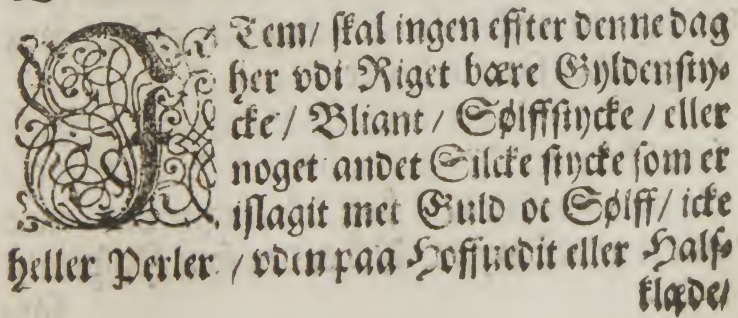 ITem/ skal ingen effter denne dag
her vdt Riget bære Gyldensty-
cke/ Bliant/ Sølffstycke/ eller
noget andet Silcke stycke som er
islagit met Guld oc Sølff/ icke
heller Perler/ vden paa Hoffuedit eller Hals-
klæde/